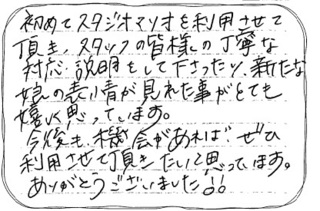 初めてスタジオマリオを利用させて
頂き、スタッフの皆様の丁寧な
対応・説明をして下さったり、新たな
娘の表情が見れた事がとても
嬉しく思っています。
今後も、機会があれば、ぜひ
利用させて頂きたいと思っています。
ありがとうございました!!